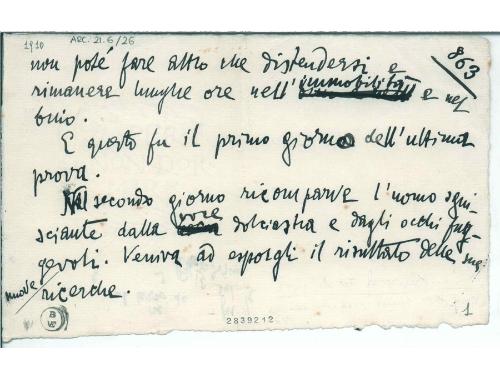 1910 ARC. 21.6/26
863
non poté fare altro che distendersi e
rimanere lunghe ore nell'immobilità e nel
buio.
E questo fu il primo giorno dell'ultima
prova.
Nel secondo giorno ricomparve l'uomo sgui-
sciante dalla voce dolciastra e dagli occhi fug-
gevoli. Veniva ad esporgli il risultato delle sue
nuove ricerche.
2839212
1